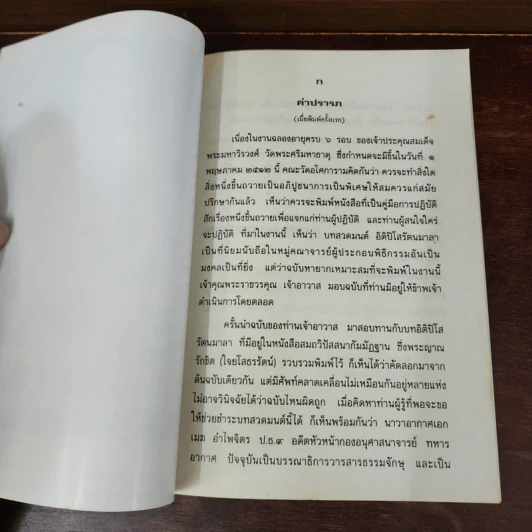 ก
คำปรารภ
(เมื่อพิมพ์ครั้งแรก)
เนื่องในงานฉลองอายุครบ ๖ รอบ ของเจ้าประคุณสมเด็จ
พระมหาวีรวงศ์ วัดพระศรีมหาธาตุ ซึ่งกำหนดจะมีขึ้นในวันที่ ๑
พฤษภาคม ๒๕๑๒ นี้ คณะวัดอโศการามคิดกันว่า ควรจะทำสิ่งใด
สิ่งหนึ่งขึ้นถวายเป็นอภิปูชนาการเป็นพิเศษให้สมควรแก่สมัย
ปรึกษากันแล้ว เห็นว่าควรจะพิมพ์หนังสือที่เป็นคู่มือการปฏิบัติ
สักเรื่องหนึ่งขึ้นถวายเพื่อแจกแก่ท่านผู้ปฏิบัติ และท่านผู้สนใจใคร่
จะปฏิบัติ ที่มาในงานนี้ เห็นว่า บทสวดมนต์ อิติปิโสรัตนมาลา
เป็นที่นิยมนับถือในหมู่คณาจารย์ผู้ประกอบพิธีกรรมอันเป็น
มงคลเป็นที่ยิ่ง แต่ว่าฉบับหายากเหมาะสมที่จะพิมพ์ในงานนี้
เจ้าคุณพระราชวรคุณ เจ้าอาวาส มอบฉบับที่ท่านมีอยู่ให้ข้าพเจ้า
ดำเนินการโดยตลอด
ครั้นนำฉบับของท่านเจ้าอาวาส มาสอบทานกับบทอิติปิโส
รัตนมาลา ที่มีอยู่ในหนังสือสมถวิปัสสนากัมมัฏฐาน ซึ่งพระญาณ
รักขิต (ใจยโสธรรัตน์) รวบรวมพิมพ์ไว้ ก็เห็นได้ว่าคัดลอกมาจาก
ต้นฉบับเดียวกัน แต่มีศัพท์คลาดเคลื่อนไม่เหมือนกันอยู่หลายแห่ง
ไม่อาจวินิจฉัยได้ว่าฉบับไหนผิดถูก เมื่อคิดหาท่านผู้รู้ที่พอจะขอ
ให้ช่วยชำระบทสวดมนต์นี้ได้ ก็เห็นพร้อมกันว่า นาวาอากาศเอก
เมฆ อำไพจริต ป.ธ.๙ อดีตหัวหน้ากองอนุศาสนาจารย์ ทหาร
อากาศ ปัจจุบันเป็นบรรณาธิการวารสารธรรมจักษุ และเป็น